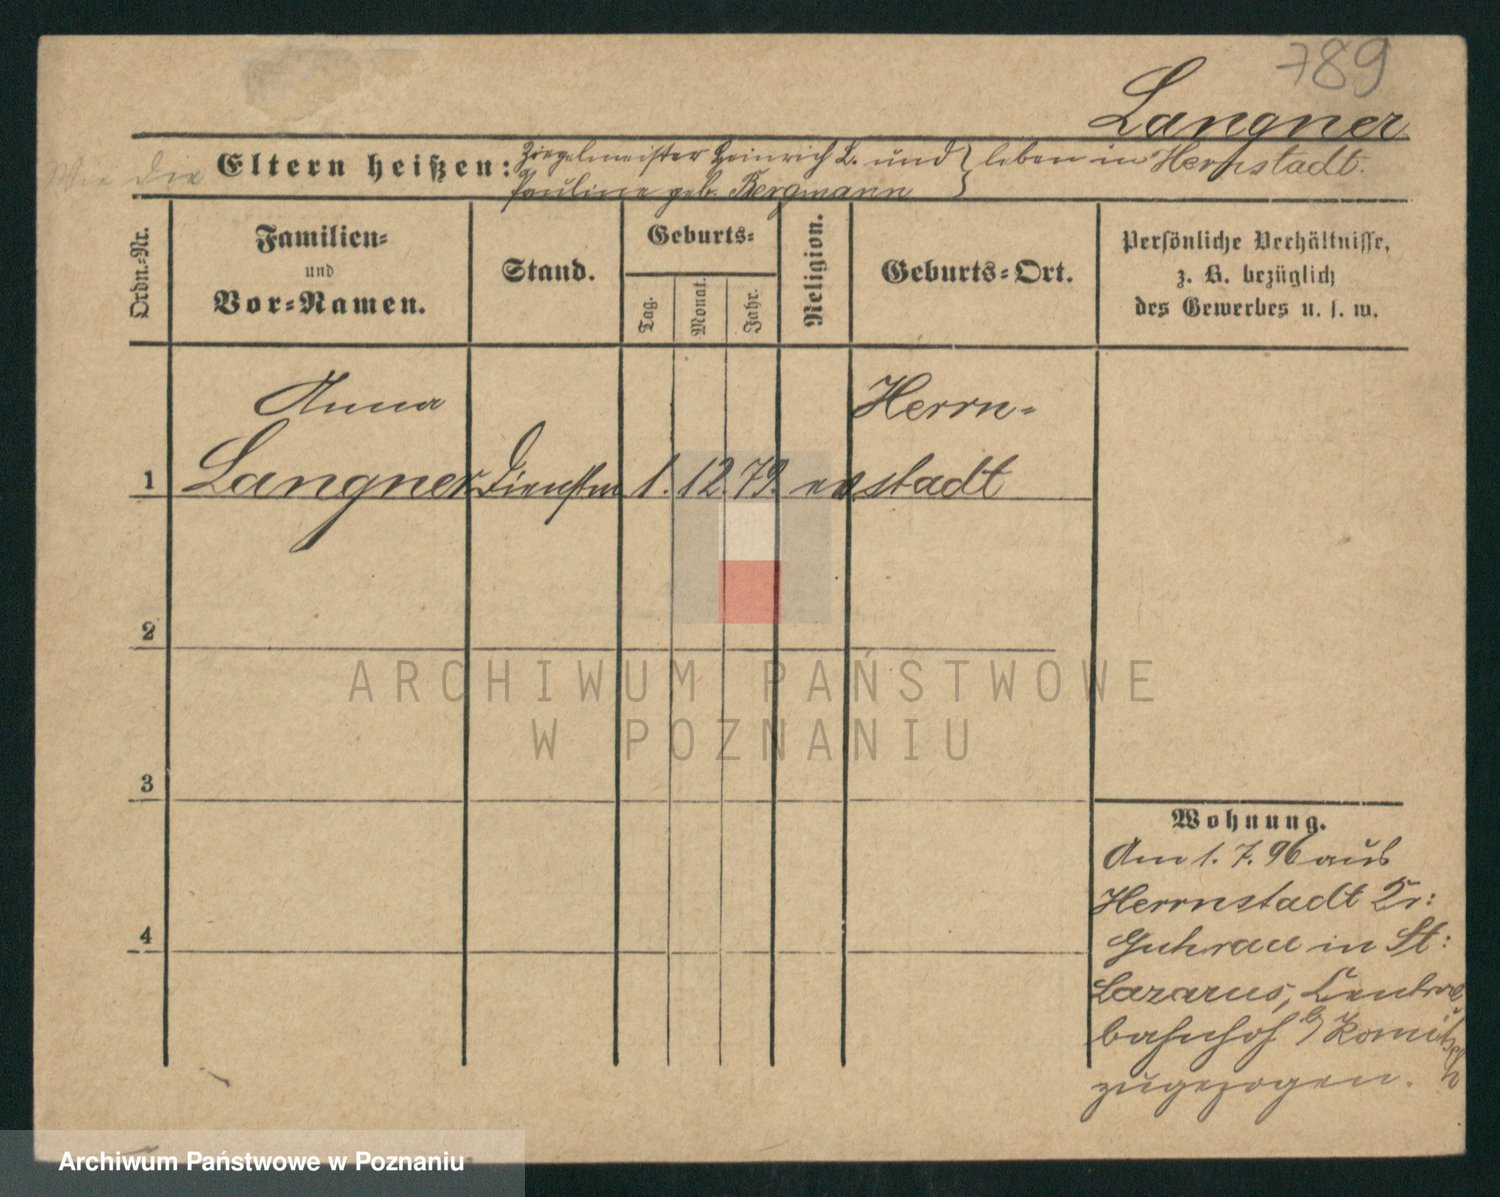 789
Langner
Wie die Eltern heißen: Ziegelmeister Heinrich L. und } leben in Herrnstadt.
Pauline geb. Bergmann
Ordn.-Nr.
Familien-
und
Vor-Namen.
Stand.
Geburts-
Tag.
Monat.
Jahr.
Religion.
Geburts-Ort.
Persönliche Verhältnisse,
z. B. bezüglich
des Gewerbes u. s. w.
Anna Herrn-
1 Langner Dienstm 1. 12. 79. ev stadt
2
3
4
Wohnung.
Am 1. 7. 96 aus
Herrnstadt Kr:
Guhrau in St:
Lazarus, Central
bahnhof b/ Komitsch
zugezogen.
ARCHIWUM PAŃSTWOWE
W POZNANIU
Archiwum Państwowe w Poznaniu